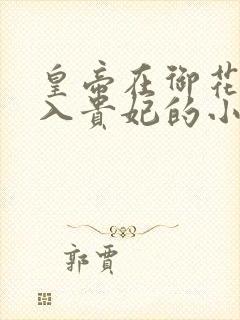 皇帝在御花
入贵妃的小
郭贾